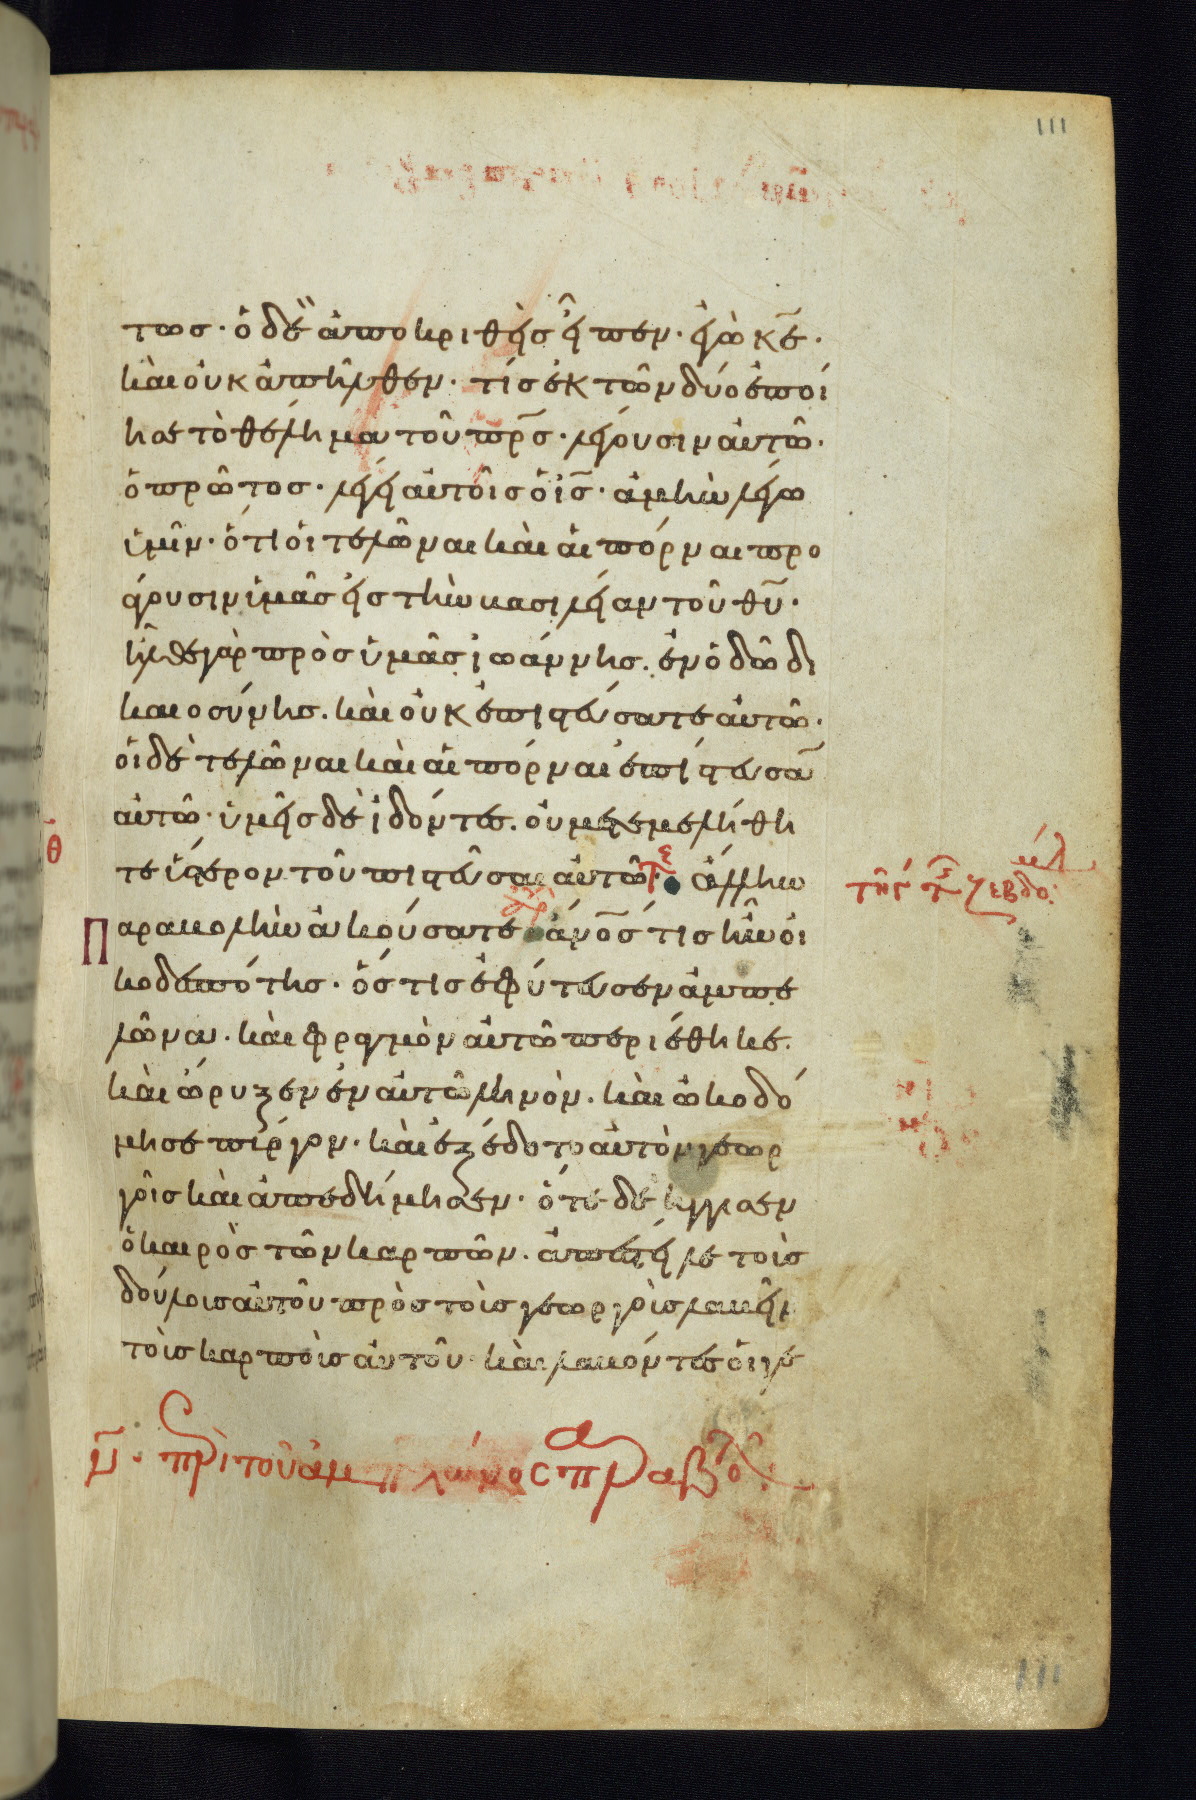 111
τωσ· ὁ δὲ ἀποκριθεὶσ εἶπεν· ἐγὼ κ̅ε̅·
καὶ οὐκ ἀπῆλθεν· τίσ ἐκ τῶν δύο ἐποί
ησε τὸ θέλημα τοῦ π̅ρ̅σ̅· λέγουσιν αὐτῶ·
ὁ πρῶτοσ· λέγει αὐτοῖσ ὁ ι̅σ̅· ἀμὴν λέγω
ὑμῖν· ὅτι οἱ τελῶναι καὶ αἱ πόρναι προ
άγουσιν ὑμᾶσ εἰσ τὴν βασιλείαν τοῦ θ̅υ̅·
ἦλθε γὰρ πρὸσ ὑμᾶσ ἰωάννησ. ἐν ὁδῶ δι
καιοσύνησ. καὶ οὐκ ἐπιστεύσατε αὐτῶ·
οἱ δὲ τελῶναι καὶ αἱ πόρναι ἐπίστευσα̅
αὐτῶ· ὑμεῖσ δὲ ἰδόντεσ. οὐ μετεμελήθη
τε ὕστερον τοῦ πιστεῦσαι αὐτῶ· ἄλλην
παραβολὴν ἀκούσατε ἄν̅ο̅σ̅ τισ ἦν οἰ
κοδεσπότησ· ὅστισ ἐφύτευσεν ἀμπε
λῶνα· καὶ φραγμὸν αὐτῶ περιέθηκε.
καὶ ὤρυξεν ἐν αὐτῶ ληνὸν. καὶ ὠκοδό
μησε πύργον· καὶ ἐξέδοτο αὐτὸν γεωρ
γοῖσ καὶ ἀπεδήμησεν· ὅτε δὲ ἤγγισεν
ὁ καιρὸσ τῶν καρπῶν. ἀπέστειλε τοὺσ
δούλουσ αὐτοῦ πρὸσ τοὺσ γεωργοὺσ λαβεῖν
τοὺσ καρποὺσ αὐτοῦ· καὶ λαβόντεσ οἱ γε
θ
περὶ τοῦ ἀμπελῶνοσ παραβολ
111